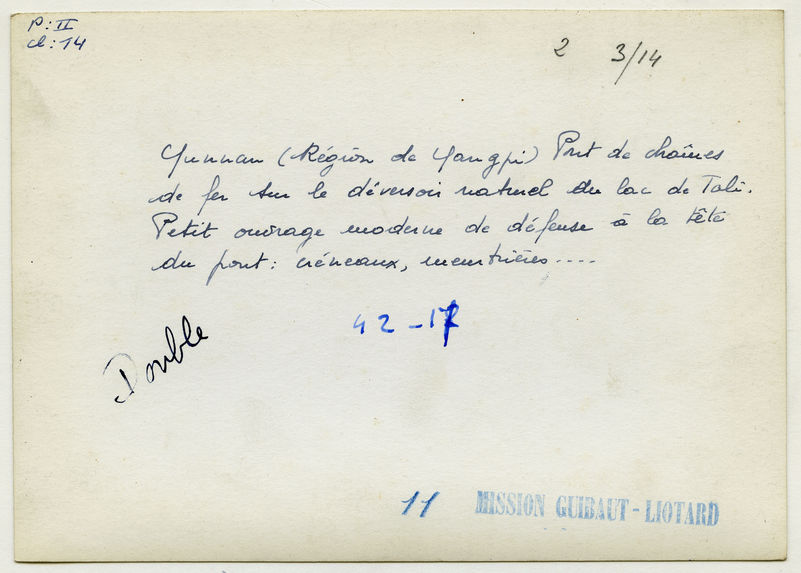 P: II
cl: 14
2 3/14
Yunnan (Région de Yangpi) Pont de chaînes
de fer sur le déversoir naturel du lac de Tali.
Petit ouvrage moderne de défense à la tête
du pont: créneaux, meurtrières....
42-17
Double
11 MISSION GUIBAUT-LIOTARD